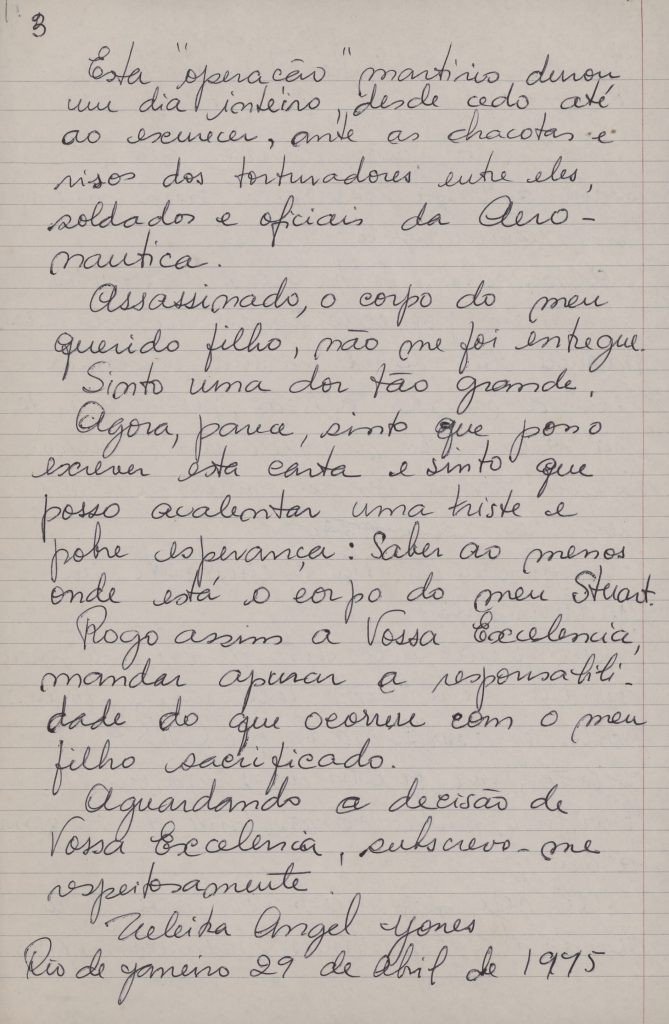 3
Esta "operacão" martirio durou
um dia inteiro, desde cedo até
ao escurecer, ante as chacotas e
risos dos torturadores entre eles,
soldados e oficiais da Aero-
nautica.
Assassinado, o corpo do meu
querido filho, não me foi entregue.
Sinto uma dor tão grande.
Agora, parece, sinto que posso
escrever esta carta e sinto que
posso acalentar uma triste e
pobre esperança: Saber ao menos
onde está o corpo do meu Stuart.
Rogo assim a Vossa Excelencia,
mandar apurar a responsabili-
dade do que ocorreu com o meu
filho sacrificado.
Aguardando a decisão de
Vossa Excelencia, subscrevo-me
respeitosamente.
Zuleika Angel Jones
Rio de janeiro 29 de Abril de 1975